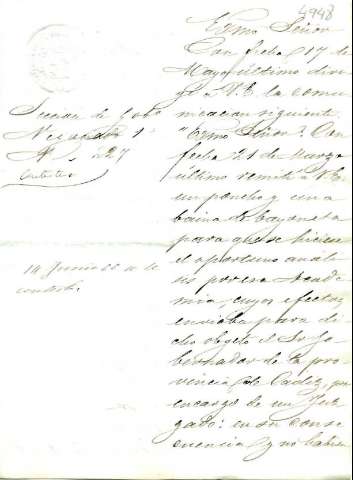 4948
Exmo Señor
Con fecha 17 de
Mayo último diri
gí a V.E. la comu
nicacion siguiente
"Exmo Señor: Con
fecha 21 de Marzo
último remití a V.E.
un poncho y una
baina de bayoneta
para que se hiciese
el oportuno análi
sis por esa Acade
mia, cuyos efectos
enviaba para di
cho objeto el Sr Go
bernador de la pro
vincia de Cadiz, por
encargo de un Juz
gado: en su conse
cuencia y no habien
Seccion de Gobo
Negociado 1º
Nº 227
14 Junio
contestó